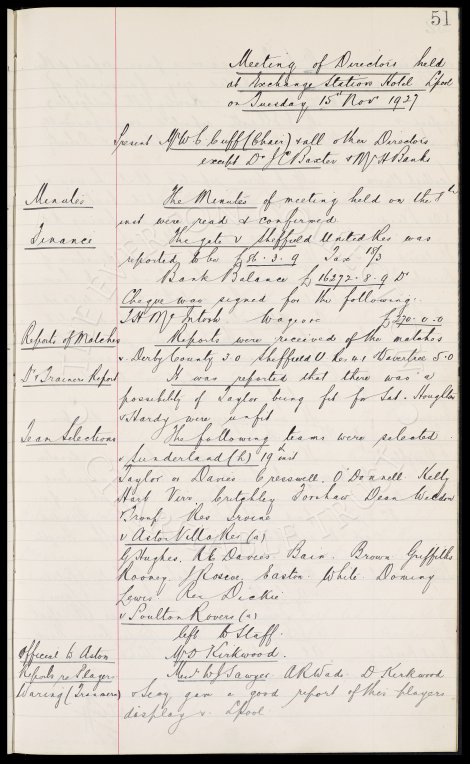 51
Meeting of Directors held
at Exchange Station Hotel L'pool
on Tuesday 15th Nov 1927
Present Mr W C Cuff (Chair) & all other Directors
except Dr J C Baxter & Mr A Banks
Minutes The Minutes of meeting held on the 8th
inst were read & confirmed
Finance The gate v Sheffield United Res was
reported to be £86-3-9 Tax 18/3
Bank Balance £16277-8-9 Dr
Cheque was signed for the following:
J H McIntosh Wages £270-0-0
Reports of Matches Reports were received of the matches
v. Derby County 3-0 Sheffield U Res 4-1 Wavertree 5-0
Dr & Trainers Report It was reported that there was a
possibility of Taylor being fit for Sat. Houghton
& Hardy were unfit
Team Selections The following teams were selected.
v Sunderland (h) 19th inst
Taylor or Davies Cresswell, O'Donnell Kelly
Hart Virr. Critchley Forshaw Dean Weldon
Troup. Res Irvine
v Aston Villa Res (a)
G Hughes. Davies Bain. Brown Griffiths
Rooney. J Roscoe, Easton. White. Dominy
Lewis. Res Dickie
v Poulton Rovers (a)
left to Staff.
Official to Aston Mr D Kirkwood.
Reports re Players Messrs W J Sawyer A R Wade D Kirkwood
Waring (Tranmere) & Seag gave a good report of this players
display v. L'pool